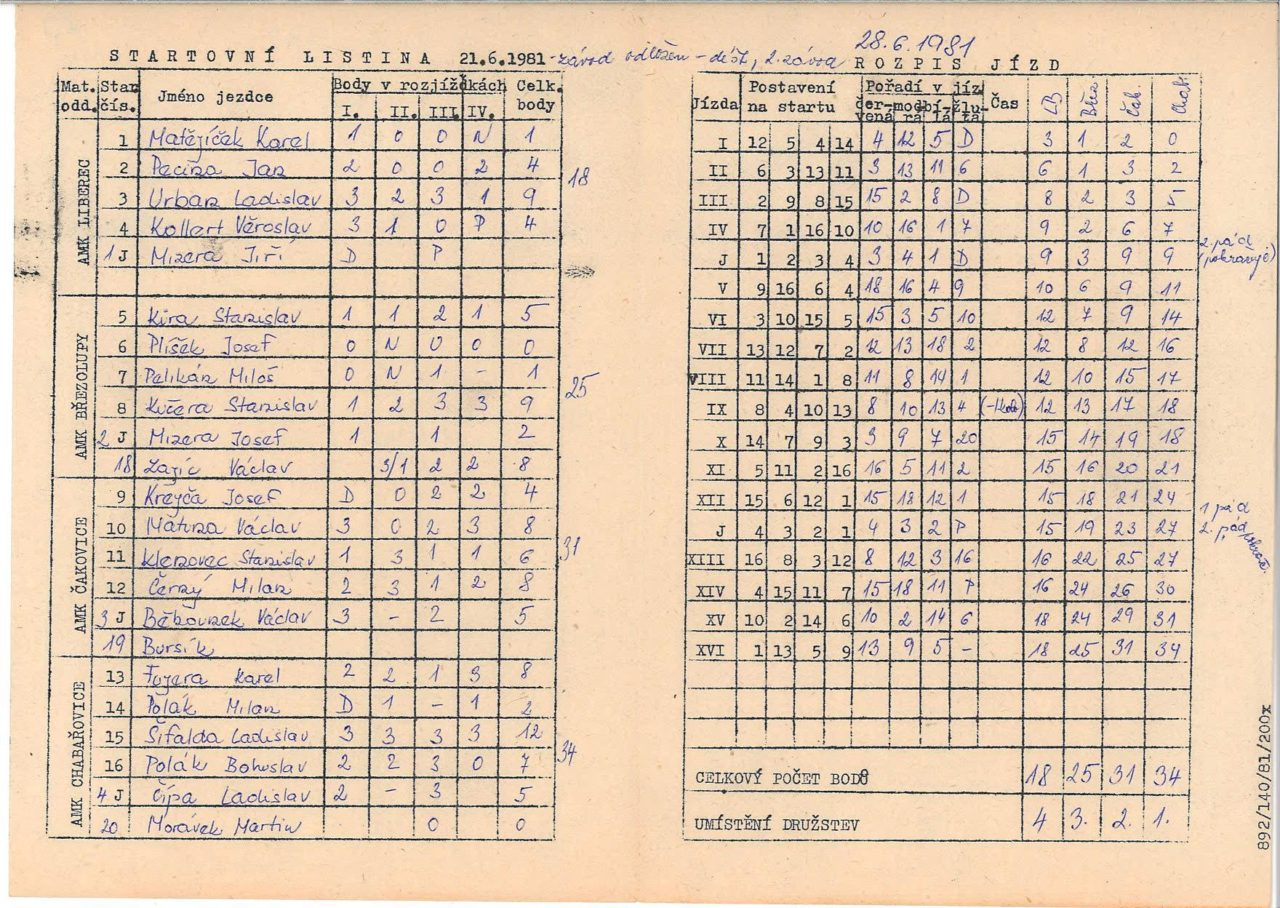 STARTOVNÍ LISTINA 21.6.1981 - závod odložen - déšť, 2. závod
Mat. odd. Star. čís. Jméno jezdce Body v rozjížďkách Celk. body
I. II. III. IV.
AMK LIBEREC
1 Matějíček Karel 1 0 0 N 1
2 Pecina Jan 2 0 0 2 4
3 Urban Ladislav 3 2 3 1 9
4 Kollert Věroslav 3 1 0 P 4
1 J Mizera Jiří D P
18
AMK BŘEZOLUPY
5 Kůra Stanislav 1 1 2 1 5
6 Plíšek Josef 0 N 0 0 0
7 Pelikán Miloš 0 N 1 - 1
8 Kučera Stanislav 1 2 3 3 9
2 J Mizera Josef 1 1 2
18 Zajíc Václav 3/1 2 2 8
25
AMK ČAKOVICE
9 Krejča Josef D 0 2 2 4
10 Maturza Václav 3 0 2 3 8
11 Klenovec Stanislav 1 3 1 1 6
12 Černý Milan 2 3 1 2 8
3 J Běhounek Václav 3 - 2 5
19 Bursík
31
AMK CHABAŘOVICE
13 Fugera Karel 2 2 1 3 8
14 Polák Milan D 1 - 1 2
15 Šifalda Ladislav 3 3 3 3 12
16 Polák Bohuslav 2 2 3 0 7
4 J Čípa Ladislav 2 - 3 5
20 Morávek Martin 0 0
34
28.6.1981
ROZPIS JÍZD
Jízda Postavení na startu Pořadí v jíz čer-vená mod-rá bí-lá žlu-tá Čas LB Břez Čak. Chab.
I 12 5 4 14 4 12 5 D 3 1 2 0
II 6 3 13 11 3 13 11 6 6 1 3 2
III 2 9 8 15 15 2 8 D 8 2 3 5
IV 7 1 16 10 10 16 1 7 9 2 6 7
J 1 2 3 4 3 4 1 D 9 3 9 9 2. pád (pokračuje)
V 9 16 6 4 18 16 4 9 10 6 9 11
VI 3 10 15 5 15 3 5 10 12 7 9 14
VII 13 12 7 2 12 13 18 2 12 8 12 16
VIII 11 14 1 8 11 8 14 1 12 10 15 17
IX 8 4 10 13 8 10 13 4 12 13 17 18
X 14 7 9 3 3 9 7 20 15 14 19 18
XI 5 11 2 16 16 5 11 2 15 16 20 21
XII 15 6 12 1 15 18 12 1 15 18 21 24
J 4 3 2 1 4 3 2 P 15 19 23 27 1 pád 2. pád
XIII 16 8 3 12 8 12 3 16 16 22 25 27
XIV 4 15 11 7 15 18 11 P 16 24 26 30
XV 10 2 14 6 10 2 14 6 18 24 29 31
XVI 1 13 5 9 13 9 5 - 18 25 31 34
CELKOVÝ POČET BODŮ 18 25 31 34
UMÍSTĚNÍ DRUŽSTEV 4 3. 2. 1.
892/140/81/200x